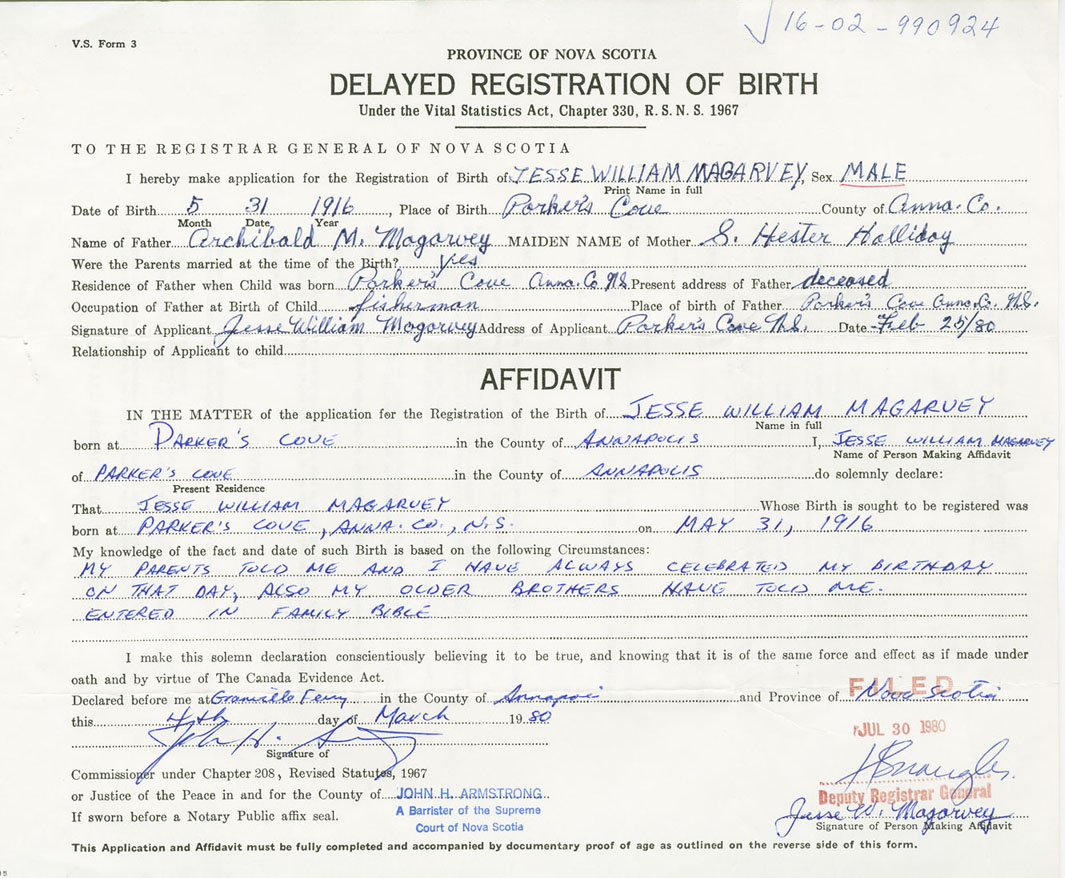 16-02-990924
V.S. Form 3
PROVINCE OF NOVA SCOTIA
DELAYED REGISTRATION OF BIRTH
Under the Vital Statistics Act, Chapter 330, R.S.N.S. 1967
TO THE REGISTRAR GENERAL OF NOVA SCOTIA
I hereby make application for the Registration of Birth of JESSE WILLIAM MAGARVEY, Sex MALE
Print Name in full
Date of Birth 5 31 1916, Place of Birth Parker's Cove County of Anna. Co.
Month Date Year
Name of Father Archibald M. Magarvey MAIDEN NAME of Mother S. Hester Halliday
Were the Parents married at the time of the Birth? yes
Residence of Father when Child was born Parker's Cove Anna. Co. N.S. Present address of Father deceased
Occupation of Father at Birth of Child fisherman Place of birth of Father Parker's Cove Anna. Co. N.S.
Signature of Applicant Jesse William Magarvey Address of Applicant Parker's Cove N.S. Date Feb 25/80
Relationship of Applicant to child
AFFIDAVIT
IN THE MATTER of the application for the Registration of the Birth of JESSE WILLIAM MAGARVEY
Name in full
born at PARKER'S COVE in the County of ANNAPOLIS I, JESSE WILLIAM MAGARVEY
Name of Person Making Affidavit
of PARKER'S COVE in the County of ANNAPOLIS do solemnly declare:
Present Residence
That JESSE WILLIAM MAGARVEY Whose Birth is sought to be registered was
born at PARKER'S COVE, ANNA. CO., N.S. on MAY 31, 1916
My knowledge of the fact and date of such Birth is based on the following Circumstances:
MY PARENTS TOLD ME AND I HAVE ALWAYS CELEBRATED MY BIRTHDAY
ON THAT DAY, ALSO MY OLDER BROTHERS HAVE TOLD ME.
ENTERED IN FAMILY BIBLE
I make this solemn declaration conscientiously believing it to be true, and knowing that it is of the same force and effect as if made under
oath and by virtue of The Canada Evidence Act.
Declared before me at Granville Ferry in the County of Annapolis and Province of Nova Scotia
FILED
this 4th day of March 1980
JUL 30 1980
Signature of
Commissioner under Chapter 208, Revised Statutes, 1967
or Justice of the Peace in and for the County of JOHN H. ARMSTRONG
Deputy Registrar General
A Barrister of the Supreme
Jesse W. Magarvey
If sworn before a Notary Public affix seal.
Court of Nova Scotia
Signature of Person Making Affidavit
This Application and Affidavit must be fully completed and accompanied by documentary proof of age as outlined on the reverse side of this form.